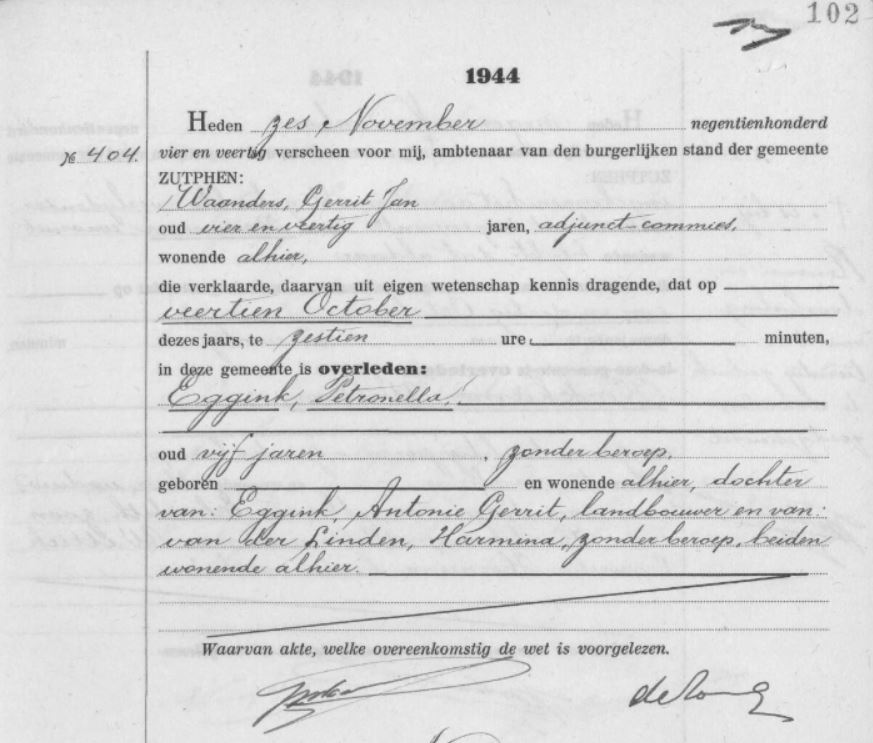 102
1944
Heden zes November negentienhonderd
№ 404. vier en veertig verscheen voor mij, ambtenaar van den burgerlijken stand der gemeente
ZUTPHEN:
Waanders, Gerrit Jan
oud vier en veertig jaren, adjunct-commies,
wonende alhier,
die verklaarde, daarvan uit eigen wetenschap kennis dragende, dat op
veertien October
dezes jaars, te zestien ure minuten,
in deze gemeente is overleden:
Eggink, Petronella,
oud vijf jaren, zonder beroep,
geboren en wonende alhier, dochter
van: Eggink, Antonie Gerrit, landbouwer en van:
van der Linden, Harmina, zonder beroep, beiden
wonende alhier.
Waarvan akte, welke overeenkomstig de wet is voorgelezen.
de Jong